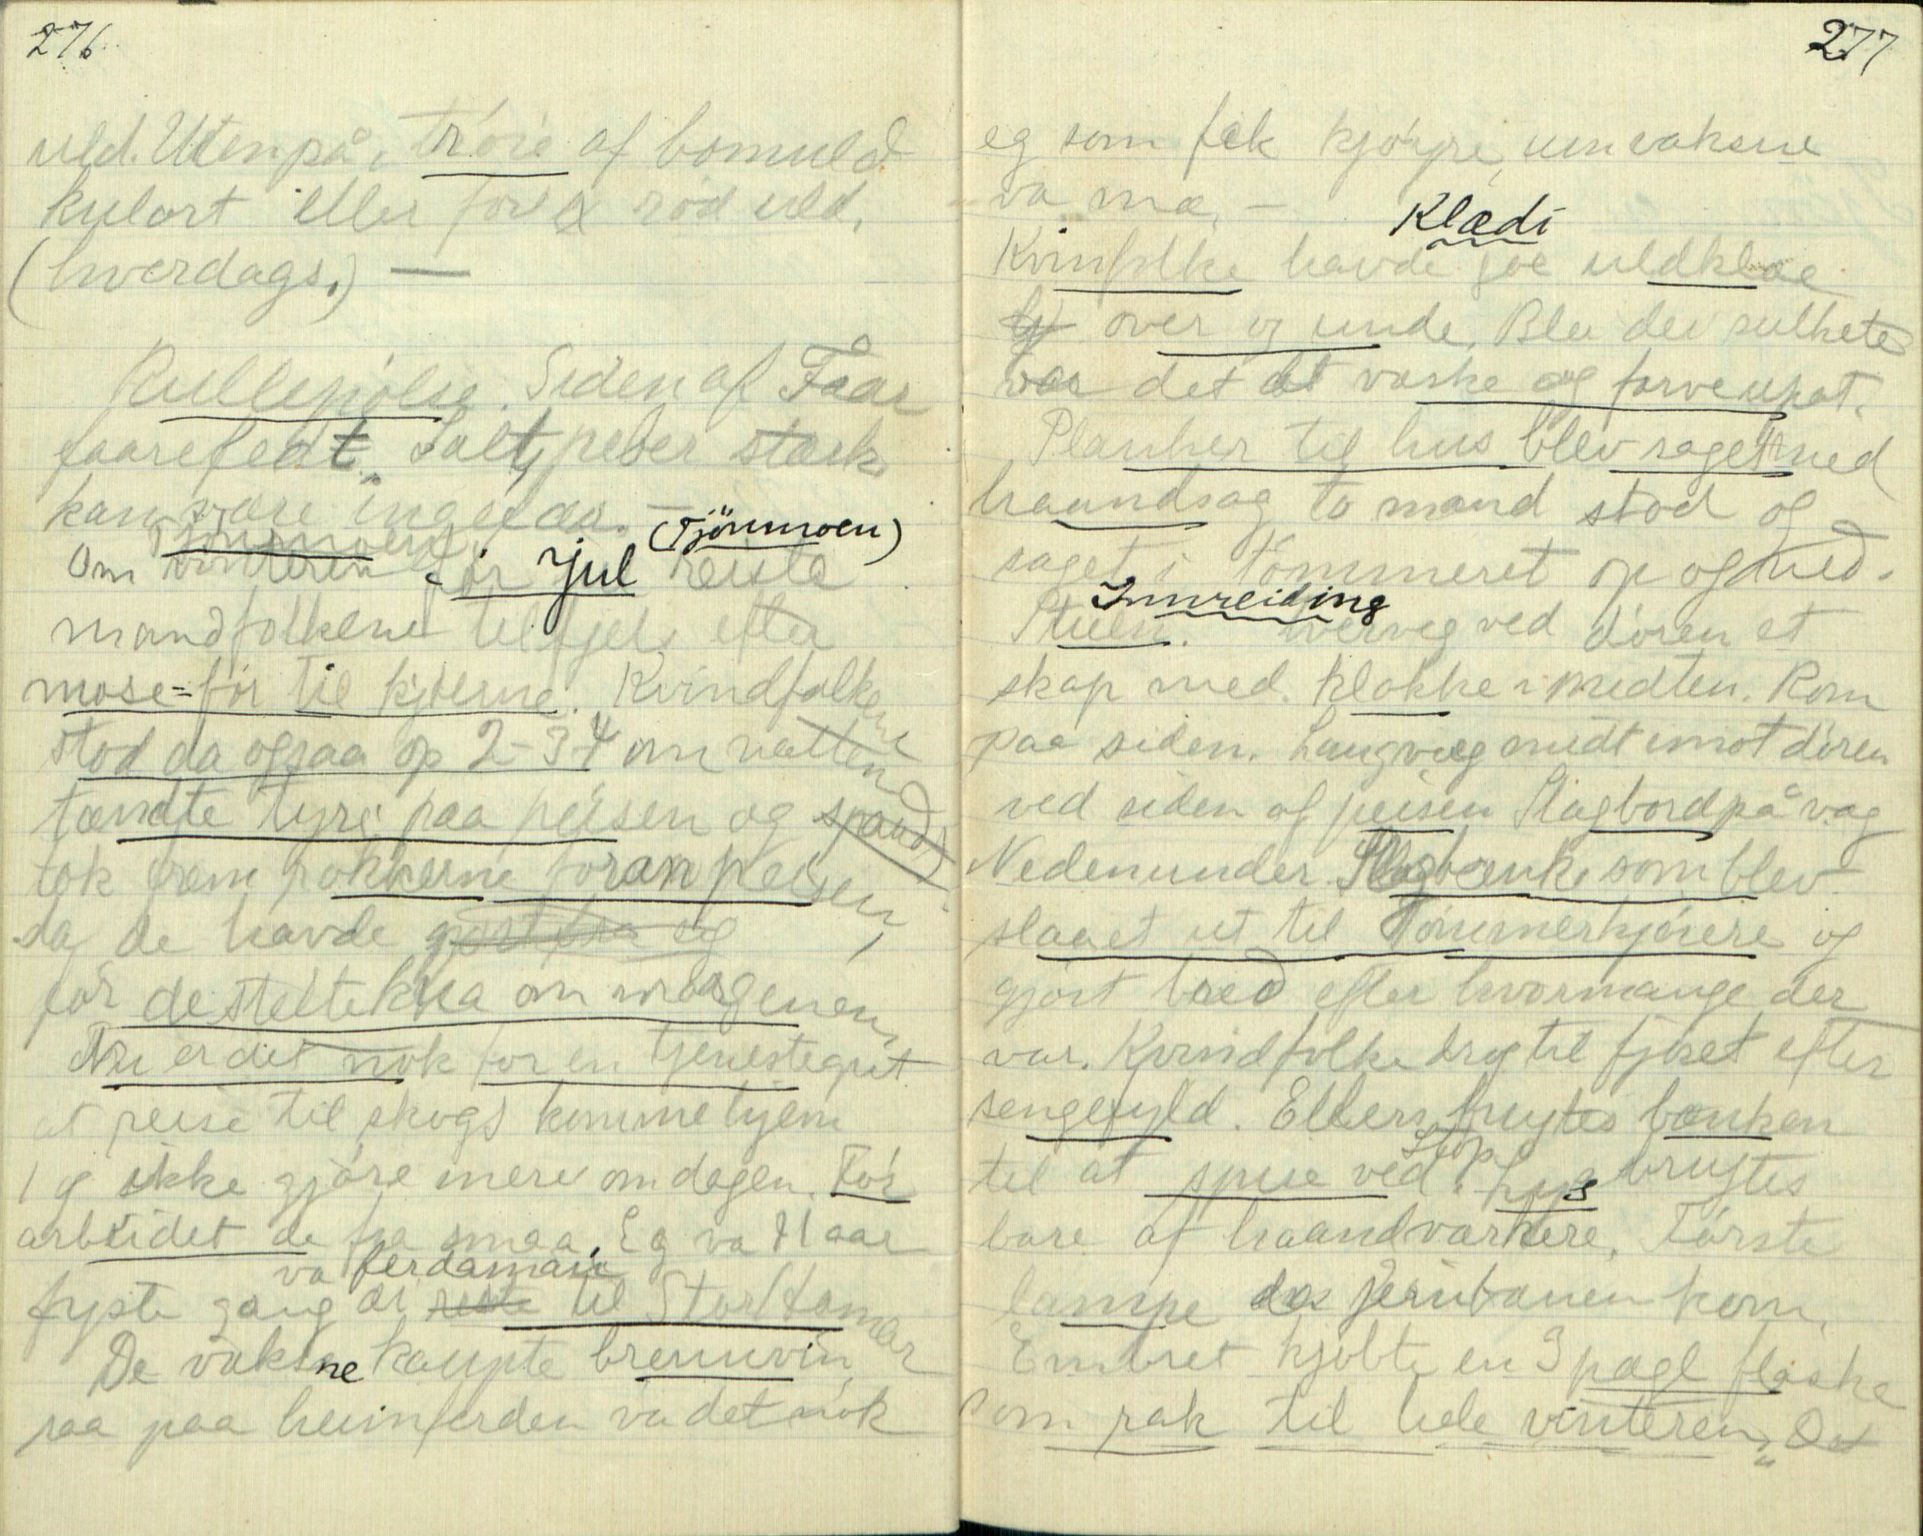 276
uld. Utenpå, trøie af bomuld
kulørt eller rød uld,
(hverdags.) —
Rullepølse. Siden af Faar
faarefedt. Salt, peber stærk
kan være ingefær. —
(Tjönnmoen)
Om vinteren før jul reiste
mandfolkene til fjels efter
mose-för til kjørne. Kvindfolkene
stod da ogsaa op 2-3-4 om natten
tændte tyri paa peisen og spandt
tok frem rokkerne foran peisen,
da de havde gjort fra og
før de steltekka om morgenen,
Nu er det nok for en tjenestegut
at reise til skogs komme hjem
og ikke gjøre mere om dagen. Før
arbeidet de fra smaa. Eg va 11 aar
va ferdaman
fyste gang di reste til StorHamar
De vaksne kaupte brennvin,
saa paa heimferden va det nok
277
eg som fek kjøyre, um vaksne
va mæ. —
Klædi
Kvinfolke havde uldklæ
over og unde. Blev dei sulhete
var det at vaske og farve upat.
Planker til hus blev saget med
haandsag to mand stod og
saget i tømmeret op og ned.
Innreiding
Stuen. tverveg ved døren et
skap med klokke i midten. Rom
paa siden. Langvæg midt imot døren
ved siden af peisen Slagbord på væg
Nedenunder Slagbænke som blev
slaaet ut til Tømmerkjørere og
gjørt bred efter hvormange der
var. Kvindfolke drog til fjøset efter
sengefyld. Ellers brugtes bænken
til at spise ved. Lys brugtes
bare af haandværkere. Første
lampe da jernbanen kom.
Embret kjøbte en 3 pægl flaske
som rak til hele vinteren. Det